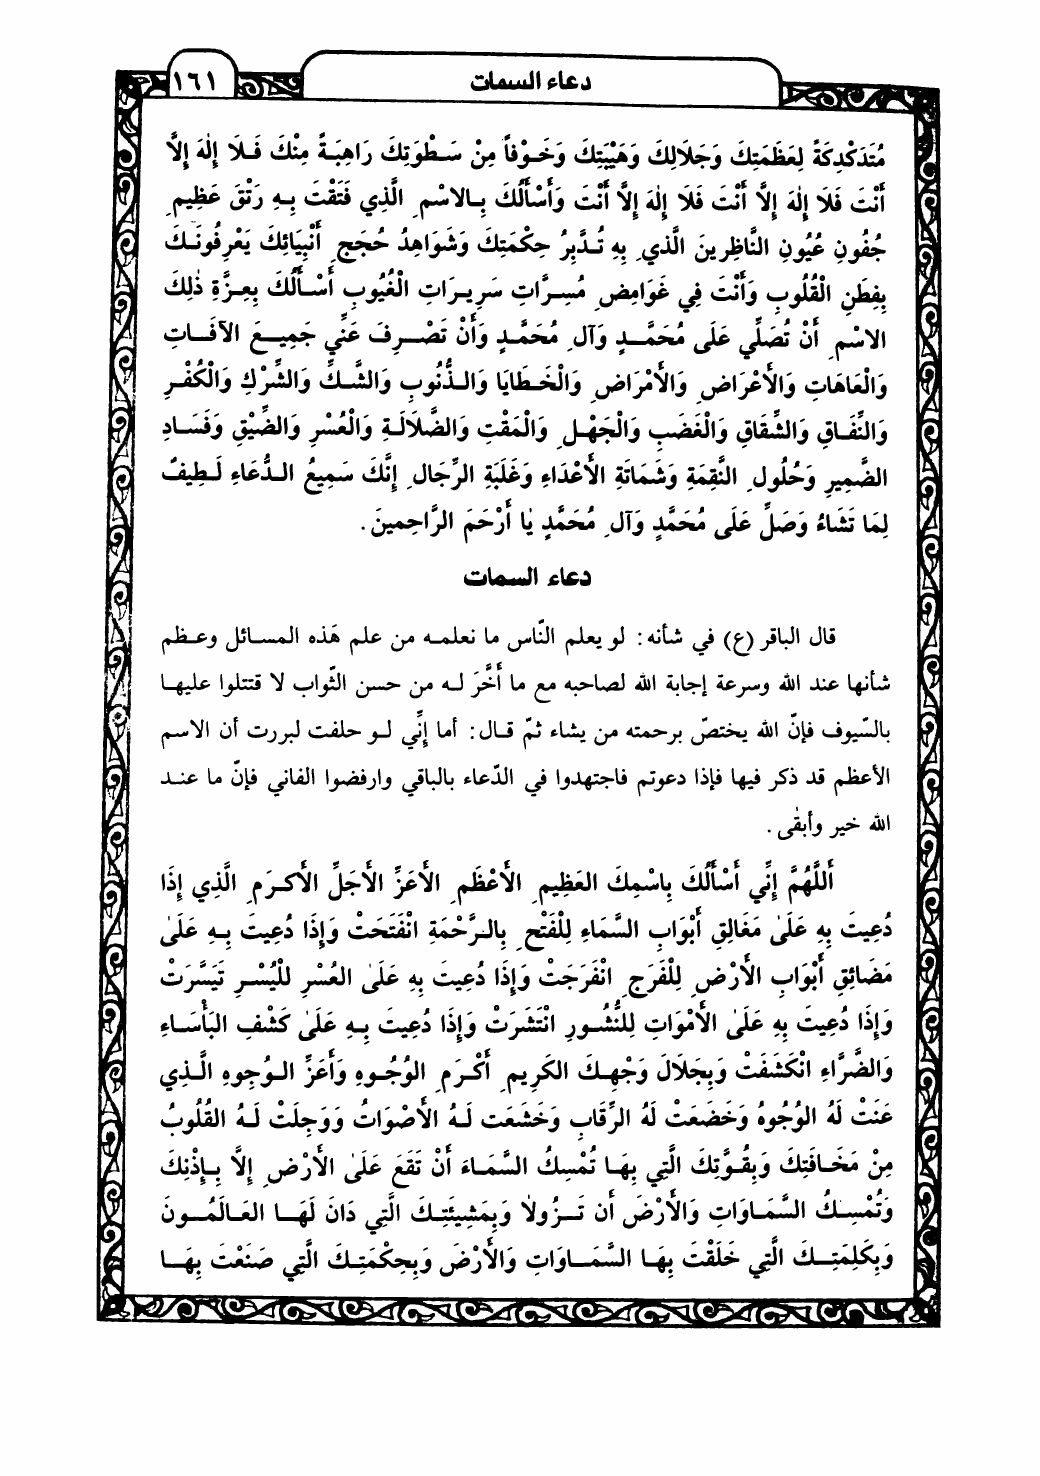 دعاء السمات
١٦١
مُتَدَكْدِكَةً لِعَظَمَتِكَ وَجَلَالِكَ وَهَيْبَتِكَ وَخَوْفاً مِنْ سَطْوَتِكَ رَاهِبَةً مِنْكَ فَلَا إِلٰهَ إِلَّا
أَنْتَ فَلَا إِلٰهَ إِلَّا أَنْتَ فَلَا إِلٰهَ إِلَّا أَنْتَ وَأَسْأَلُكَ بِالاسْمِ الَّذِي فَتَقْتَ بِهِ رَتْقَ عَظِيمِ
جُفُونِ عُيُونِ النَّاظِرِينَ الَّذي بِهِ تُدَبِّرُ حِكْمَتِكَ وَشَوَاهِدُ حُجَجِ أَنْبِيَائِكَ يَعْرِفُونَكَ
بِفِطَنِ الْقُلُوبِ وَأَنْتَ فِي غَوَامِضِ مُسِرَّاتِ سَرِيرَاتِ الْغُيُوبِ أَسْأَلُكَ بِعِزَّةِ ذٰلِكَ
الاسْمِ أَنْ تُصَلِّي عَلَى مُحَمَّدٍ وَآلِ مُحَمَّدٍ وَأَنْ تَصْرِفَ عَنِّي جَمِيعَ الآفَاتِ
وَالْعَاهَاتِ وَالأَعْرَاضِ وَالأَمْرَاضِ وَالْخَطَايَا وَالذُّنُوبِ وَالشَّكِّ وَالشِّرْكِ وَالْكُفْرِ
وَالنِّفَاقِ وَالشِّقَاقِ وَالْغَضَبِ وَالْجَهْلِ وَالْمَقْتِ وَالضَّلَالَةِ وَالْعُسْرِ وَالضِّيْقِ وَفَسَادِ
الضَّمِيرِ وَحُلُولِ النَّقِمَةِ وَشَمَاتَةِ الأَعْدَاءِ وَغَلَبَةِ الرِّجَالِ إِنَّكَ سَمِيعُ الدُّعَاءِ لَطِيفٌ
لِمَا تَشَاءُ وَصَلِّ عَلَى مُحَمَّدٍ وَآلِ مُحَمَّدٍ يَا أَرْحَمَ الرَّاحِمينَ.
دعاء السمات
قال الباقر (ع) في شأنه: لو يعلم النّاس ما نعلمه من علم هَذه المسائل وعظم
شأنها عند الله وسرعة إجابة الله لصاحبه مع ما أَخَّرَ له من حسن الثّواب لا قتتلوا عليها
بالسّيوف فإنّ الله يختصّ برحمته من يشاء ثمّ قال: أما إنّي لو حلفت لبررت أن الاسم
الأعظم قد ذكر فيها فإذا دعوتم فاجتهدوا في الدّعاء بالباقي وارفضوا الفاني فإنّ ما عند
الله خير وأبقٰى.
أَللَّهُمَّ إِنِّي أَسْأَلُكَ بِاسْمِكَ العَظِيمِ الأَعْظَمِ الأَعَزِّ الأَجَلِّ الأَكرَمِ الَّذِي إِذَا
دُعِيتَ بِهِ عَلَىٰ مَغَالِقِ أَبْوَابِ السَّمَاءِ لِلْفَتْحِ بِالرَّحْمَةِ انْفَتَحَتْ وَإِذَا دُعِيتَ بِهِ عَلَىٰ
مَضَائِقِ أَبْوَابِ الأَرْضِ لِلْفَرَجِ انْفَرَجَتْ وَإِذَا دُعِيتَ بِهِ عَلَىٰ العُسْرِ للْيُسْرِ تَيَسَّرَتْ
وَإِذَا دُعِيتَ بِهِ عَلَىٰ الأَمْوَاتِ لِلنُّشُورِ انْتَشَرَتْ وَإِذَا دُعِيتَ بِهِ عَلَىٰ كَشْفِ البَأْسَاءِ
وَالضَّرَّاءِ انْكَشَفَتْ وَبِجَلَالَ وَجْهِكَ الكَرِيمِ أَكْرَمِ الوُجُوهِ وَأَعَزِّ الوُجوهِ الَّذِي
عَنَتْ لَهُ الوُجُوهُ وَخَضَعَتْ لَهُ الرِّقَابِ وَخَشَعَت لَهُ الأَصْوَاتُ وَوَجِلَتْ لَهُ القُلُوبُ
مِنْ مَخَافَتِكَ وَبِقُوَّتِكَ الَّتِي بِهَا تُمْسِكُ السَّمَاءَ أَنْ تَقَعَ عَلَىٰ الأَرْضِ إِلَّا بِإِذْنِكَ
وَتُمْسِكُ السَّمَاوَاتِ وَالأَرْضَ أَن تَزُولاَ وَبِمَشِيئَتِكَ الَّتِي دَانَ لَهَا العَالَمُونَ
وَبِكَلِمَتِكَ الَّتِي خَلَقْتَ بِهَا السَّمَاوَاتِ وَالأَرْضَ وَبِحِكْمَتِكَ الَّتِي صَنَعْتَ بِهَا